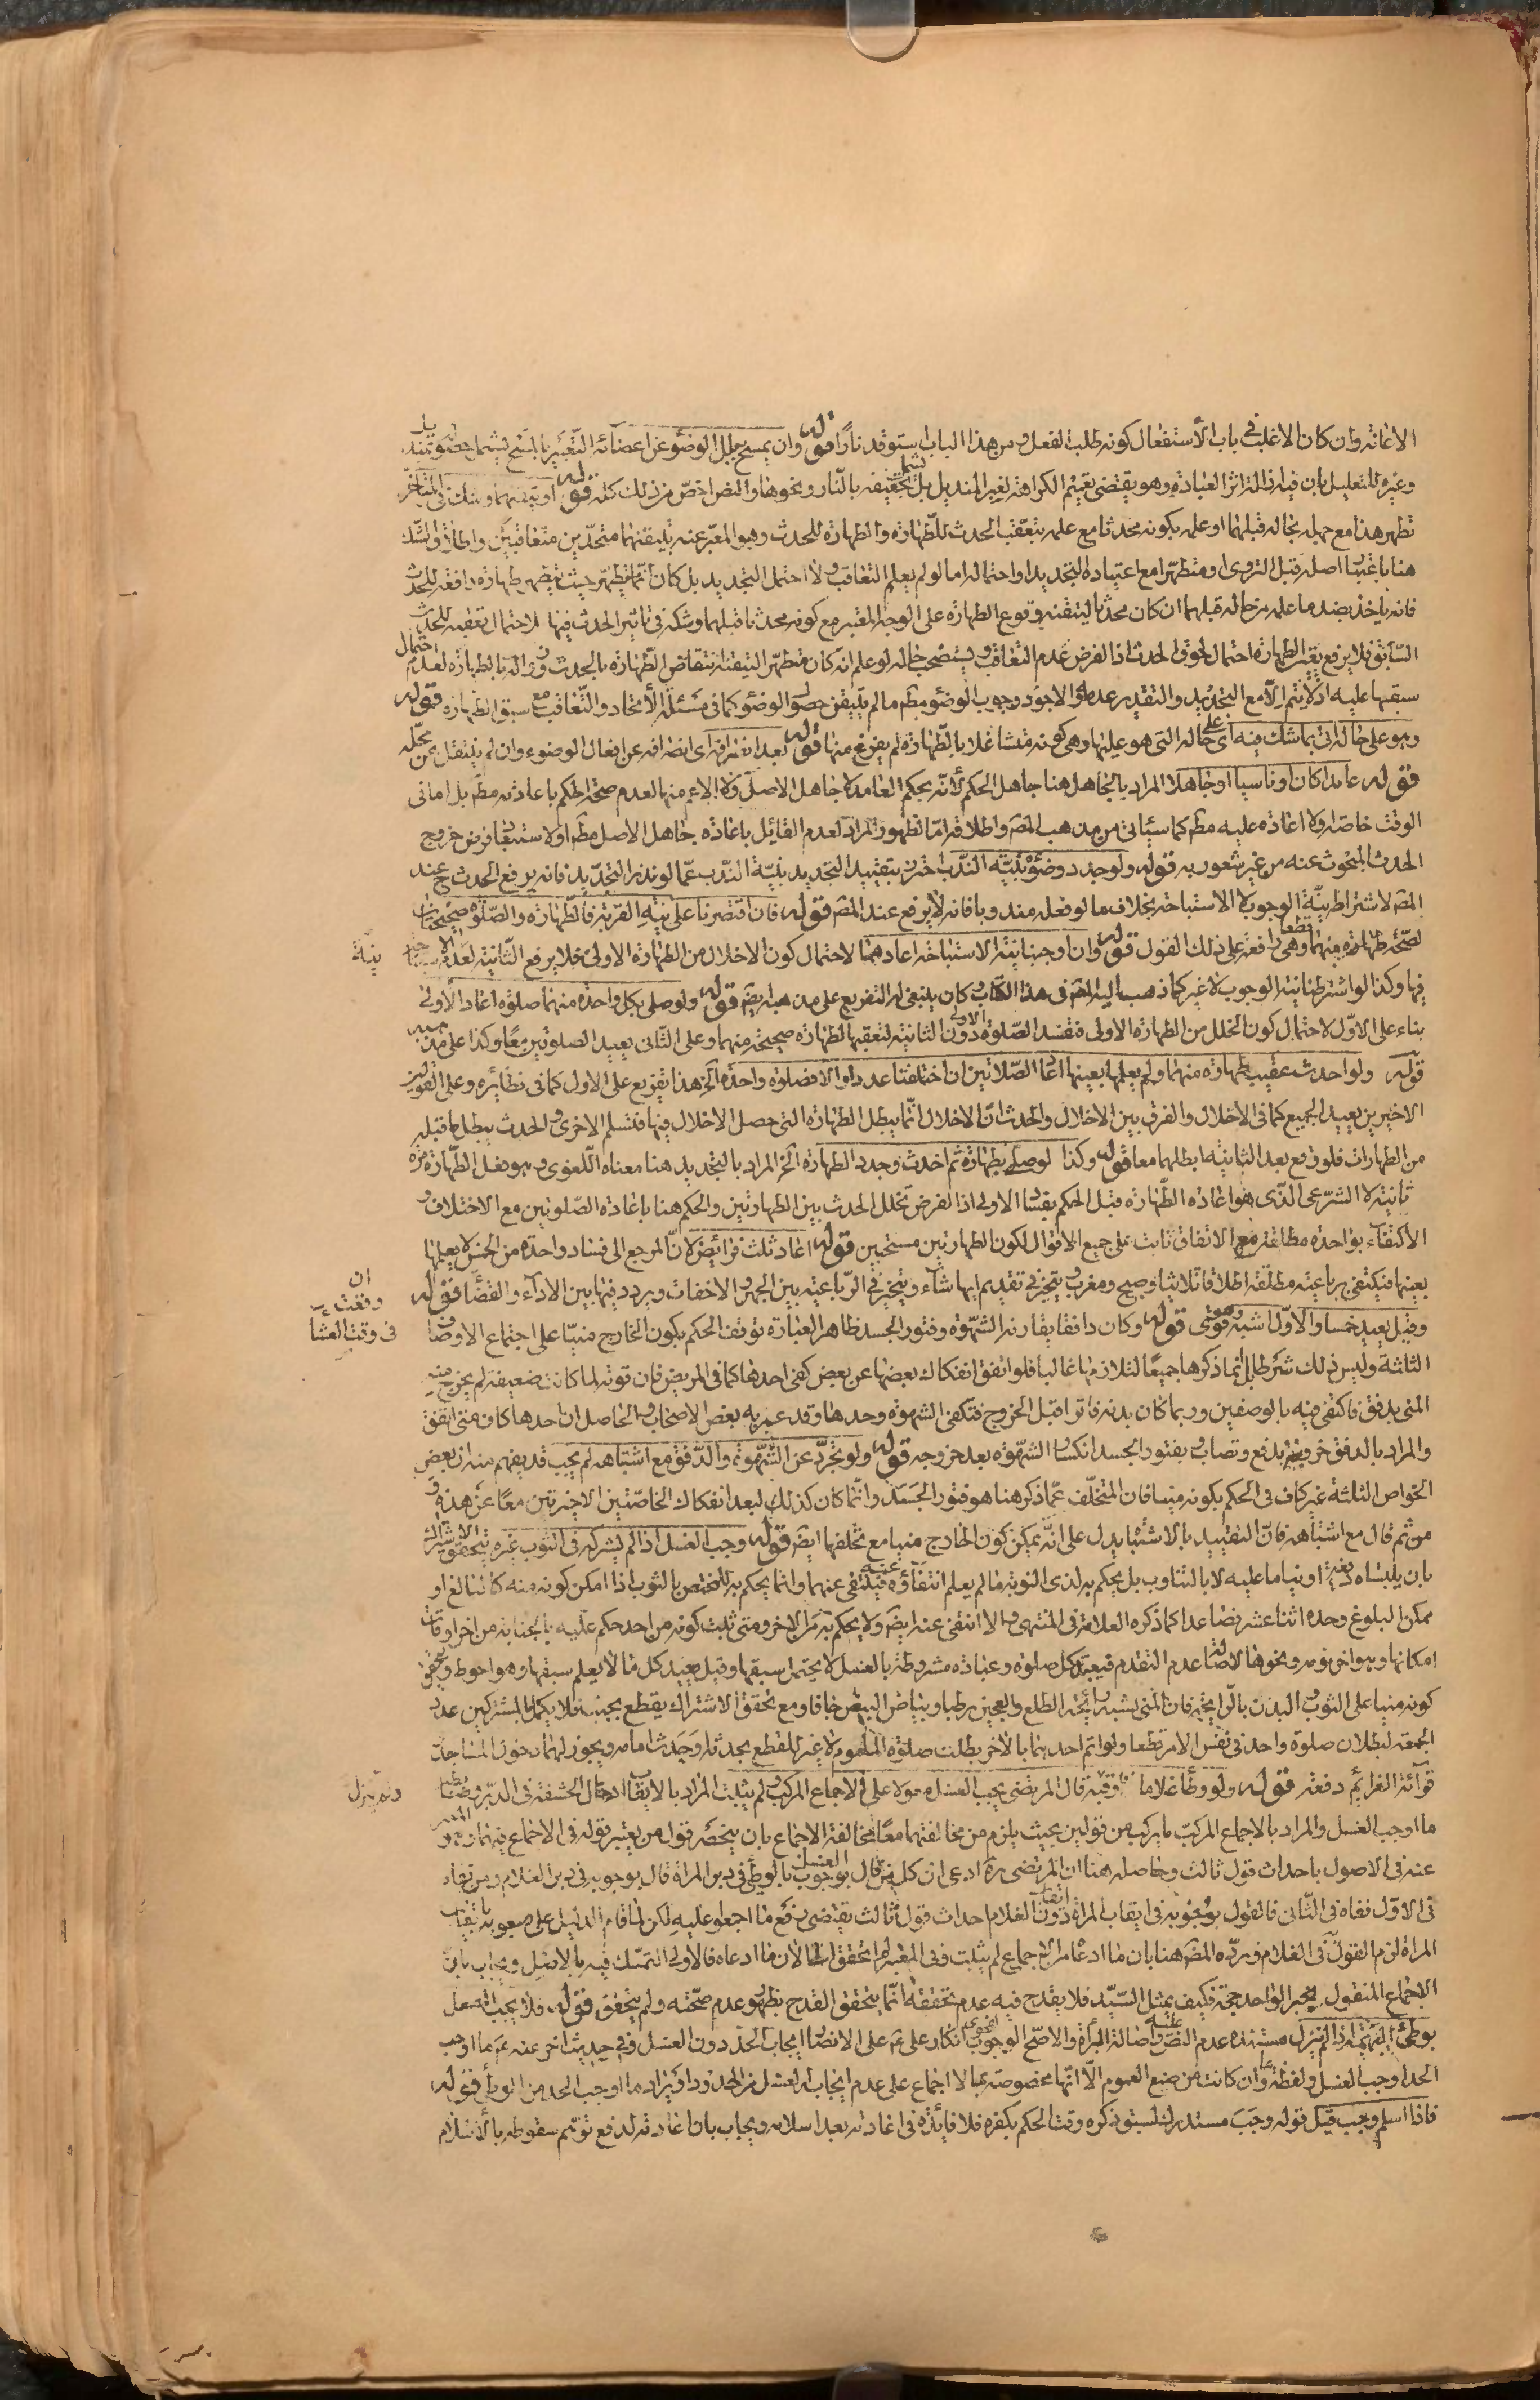 الاعانة وان كان الاغلب فى باب الاستفعال كونه طلب الفعل ومن هذا الباب استوقد نارا قوله وان يمسح بلل الوضوء عن اعضائه التعبير بالمسح يشمل حصوله بمنديل
وغيره للتعليل بان فيه ازالة اثر العبادة وهو يقتضى تعميم الكراهة لغير المنديل بل يشمل تجفيفه بالنار ونحوها والنص اخص من ذلك كله قوله او تيقنهما وشك فى المتاخر
تطهر هذا مع جهله بحاله قبلهما او علمه بكونه محدثا مع علمه بتعقب الحدث للطهارة والطهارة للحدث وهو المعبر عنه بتيقنهما متحدين متعاقبين واطلاق الشك
هنا باعتبار اصله قبل التروى او متطهرا مع اعتياده التجديد او احتماله اما لو لم يعلم التعاقب ولا احتمل التجديد بل كان انما يتطهر حيث يتطهر طهارة رافعة للحدث
فانه ياخذ بضد ما علمه من حاله قبلهما ان كان محدثا لتيقنه وقوع الطهارة على الوجه المعتبر مع كونه محدثا قبلهما وشكه فى تاثير الحدث فيها لاحتمال تعقبه للحدث
السابق فلا يرفع يقين الطهارة احتمال لحوق الحدث اذ الفرض عدم التعاقب ويستصحب حاله لو علم انه كان متطهرا لتيقنه انتقاض الطهارة بالحدث وزواله بالطهارة لعدم احتمال
سبقها عليه اذ لا يتم الا مع التجديد والتقدير عدمه والاجود وجوب الوضوء مطم ما لم يتيقن حصول الوضوء كما فى مسئلة الاتحاد والتعاقب مع سبق الطهارة قوله
وهو على حاله اتى بما شك فيه اى على حاله التى هو عليها وهى كونه متشاغلا بالطهارة لم يفرغ منها قوله بعد انصرافه اى انصرافه عن افعال الوضوء وان لم ينتقل عن محله
قوله عامدا كان او ناسيا او جاهلا المراد بالجاهل هنا جاهل الحكم لانه بحكم العامد لا جاهل الاصل والا لم يلائم منها لعدم صحة الحكم باعادته مطم بل اما فى
الوقت خاصة او لا اعادة عليه مطم كما سيأتى من مذهب المصم واطلاقه اما لظهور المراد لعدم القائل باعادة جاهل الاصل مطم او لاستبعاد فرض خروج
الحدث المبحوث عنه من غير شعور به قوله ولو جدد وضوءه بنية الندب احترز بتقييد التجديد بنية الندب عما لو نذر التجديد فانه يرفع الحدث ح عند
المصم لاشتراط نية الوجوب لا الاستباحة بخلاف ما لو فعله مندوبا فانه لا يرفع عند المصم قوله فان اقتصرنا على نية القربة فالطهارة والصلوة صحيحتان
لصحة طهارة منهما قطعا وهى رافعة على ذلك القول قوله وان اوجبنا نية الاستباحة اعادهما لاحتمال كون الاخلال من الطهارة الاولى فلا يرفع الثانية لعدم نية الاستباحة
فيها وكذا لو اشترطنا نية الوجوب لا غير كما ذهب اليه المصم فى هذا الكتاب وكان ينبغى له التفريع على مذهبه ايضم قوله ولو صلى بكل واحدة منهما صلوة اعاد الاولى
بناء على الاول لاحتمال كون الخلل من الطهارة الاولى فتفسد الصلوة الاولى دون الثانية لتعقبها لطهارة صحيحة منهما وعلى الثانى يعيد الصلوتين معا وكذا على مذهبه
قوله ولو احدث عقيب طهارة منهما ولم يعلمها بعينها اعاد الصلاتين ان اختلفتا عددا والا فصلوة واحدة الخ هذا تفريع على الاول كما فى نظائره وعلى القولين
الاخيرين يعيد الجميع كما فى الاخلال والفرق بين الاخلال والحدث ان الاخلال انما يبطل الطهارة التى حصل الاخلال فيها فتسلم الاخرى والحدث يبطل ما قبله
من الطهارات فلو وقع بعد الثانية ابطلهما معا قوله وكذا لو صلى بطهارة ثم احدث وجدد الطهارة الخ المراد بالتجديد هنا معناه اللغوى وهو فعل الطهارة مرة
ثانية لا الشرعى الذى هو اعادة الطهارة قبل الحكم بفساد الاولى اذ الفرض تخلل الحدث بين الطهارتين والحكم هنا باعادة الصلوتين مع الاختلاف و
الاكتفاء بواحدة مطلقة مع الاتفاق ثابت على جميع الاقوال لكون الطهارتين مستحيين قوله اعاد ثلث فرائض لان المرجع الى فساد واحدة من الخمس لا يعلمها
بعينها فيكتفى برباعية مطلقة اطلاقا ثلاثيا وصبح ومغرب ويتخير فى تقديم ايها شاء ويتخير فى الرباعية بين الجهر والاخفات ويردد فيها بين الاداء والقضاء ان وقعت فى وقت العشاء قوله
وقيل يعيد خمسا والاول اشبه وهو قوى قوله وكان دافقا يقارنه الشهوة وفتور الجسد ظاهر العبارة توقف الحكم بكون الخارج منيا على اجتماع الاوصاف
الثلثة وليس ذلك شرطا بل انما ذكرها جميعا لتلازمها غالبا فلو اتفق انفكاك بعضها عن بعض كفى احدها كما فى المريض فان قوته لما كانت ضعيفة لم يخرج منه
المنى بدفق فاكتفى فيه بالوصفين وربما كان بدنه فاترا قبل الخروج فتكفى الشهوة وحدها وقد عبر به بعض الاصحاب والحاصل ان احدها كاف متى اتفق
والمراد بالدفق خروجه بدفع وتصاب وبفتور الجسد انكسار الشهوة بعد خروجه قوله ولو تجرد عن الشهوة والدفق مع اشتباهه لم يجب قد يفهم منه ان بعض
الخواص الثلثة غير كاف فى الحكم بكونه منيا فان المتخلف عما ذكر هنا هو فتور الجسد وانما كان كذلك لبعد انفكاك الخاصتين الاخيرتين معا عن هذه و
من ثم قال مع اشتباهه فان التقييد بالاشتباه يدل على انه يمكن كون الخارج منيا مع تخلفها ايضم قوله وجب الغسل اذا لم يشركه فى الثوب غيره يتحقق الاشتراك
بان يلبساه دفعة او يناما عليه لا بالتناوب بل يحكم به لذى النوبة ما لم يعلم انتفاؤه عنه فينتفى عنهما وانما يحكم به للمختص بالثوب اذا امكن كونه منه كالبالغ او
ممكن البلوغ وحده اثنا عشر فصاعدا كما ذكره العلامة فى المنتهى والا انتفى عنه ايضم ولا يحكم به من الاخر ومتى ثبت كونه من احد حكم عليه بالجنابة من اخر اوقات
امكانها وهو اخر نومه ونحوها لاصالة عدم التقدم فيعيد كل صلوة وعبادة مشروطة بالغسل لا يحتمل سبقها وقيل يعيد كل ما لا يعلم سبقها وهو احوط ويتحقق
كونه منيا على الثوب او البدن بالرايحة فان المنى يشبه رائحة الطلع والعجين رطبا وبياض البيض جافا ومع تحقق الاشتراك يقطع بجنب فلا يكمل بالمشتركين عدد
الجمعة لبطلان صلوة واحد فى نفس الامر قطعا ولو ائتم احدهما بالاخر بطلت صلوة الماموم لا غير للقطع بحدثه او حدث امامه ويجوز لهما دخول المساجد و
قرائة العزائم دفعة قوله ولو وطأ غلاما فاوقبه قال المرتضى يجب الغسل معولا على الاجماع المركب ولم يثبت المراد بالايقاب ادخال الحشفة فى الدبر
ما اوجب الغسل والمراد بالاجماع المركب ما يركب من قولين بحيث يلزم من مخالفتهما معا مخالفة الاجماع بان ينحصر قول من يعتبر قوله فى الاجماع فيهما
عنه فى الاصول باحداث قول ثالث وحاصله هنا ان المرتضى ره ادعى ان كل من قال بوجوب الغسل بالوطى فى دبر المراة قال بوجوبه فى دبر الغلام ومن نفاه
فى الاول نفاه فى الثانى فالقول بوجوبه فى ايقاب المراة دون ايقاب الغلام احداث قول ثالث يقتضى رفع ما اجمعوا عليه لكن لما قام الدليل على وجوبه بايقاب
المراة لزم القول به فى الغلام ورده المصم هنا بان ما ادعاه من الاجماع لم يثبت وفى المعتبر لم اتحقق الى الان ما ادعاه فالاولى التمسك فيه بالاصل ويجاب بان
الاجماع المنقول بخبر الواحد حجة فكيف بمثل السيد فلا يقدح فيه عدم تحققه انما يتحقق القدح بظهور عدم صحته ولم يتحقق قوله ولا يجب الغسل
بوطئ البهيمة اذا لم ينزل مستنده عدم النص عليه واصالة البراءة والاصح الوجوب لفحوى انكار على ع على الانصار ايجاب الحد دون الغسل وفى حديث اخر عنه ع ما اوجب
الحد اوجب الغسل ولفظة ما وان كانت من صيغ العموم الا انها مخصوصة بما لا اجماع على عدم ايجابه الغسل من الحدود او يراد ما اوجب الحد من الوطى قوله
فاذا اسلم وجب قيل قوله وجب مستدرك لسبق ذكره وقت الحكم بكفره فلا فائدة فى اعادته بعد اسلامه ويجاب بان اعادته لدفع توهم سقوطه بالاسلام